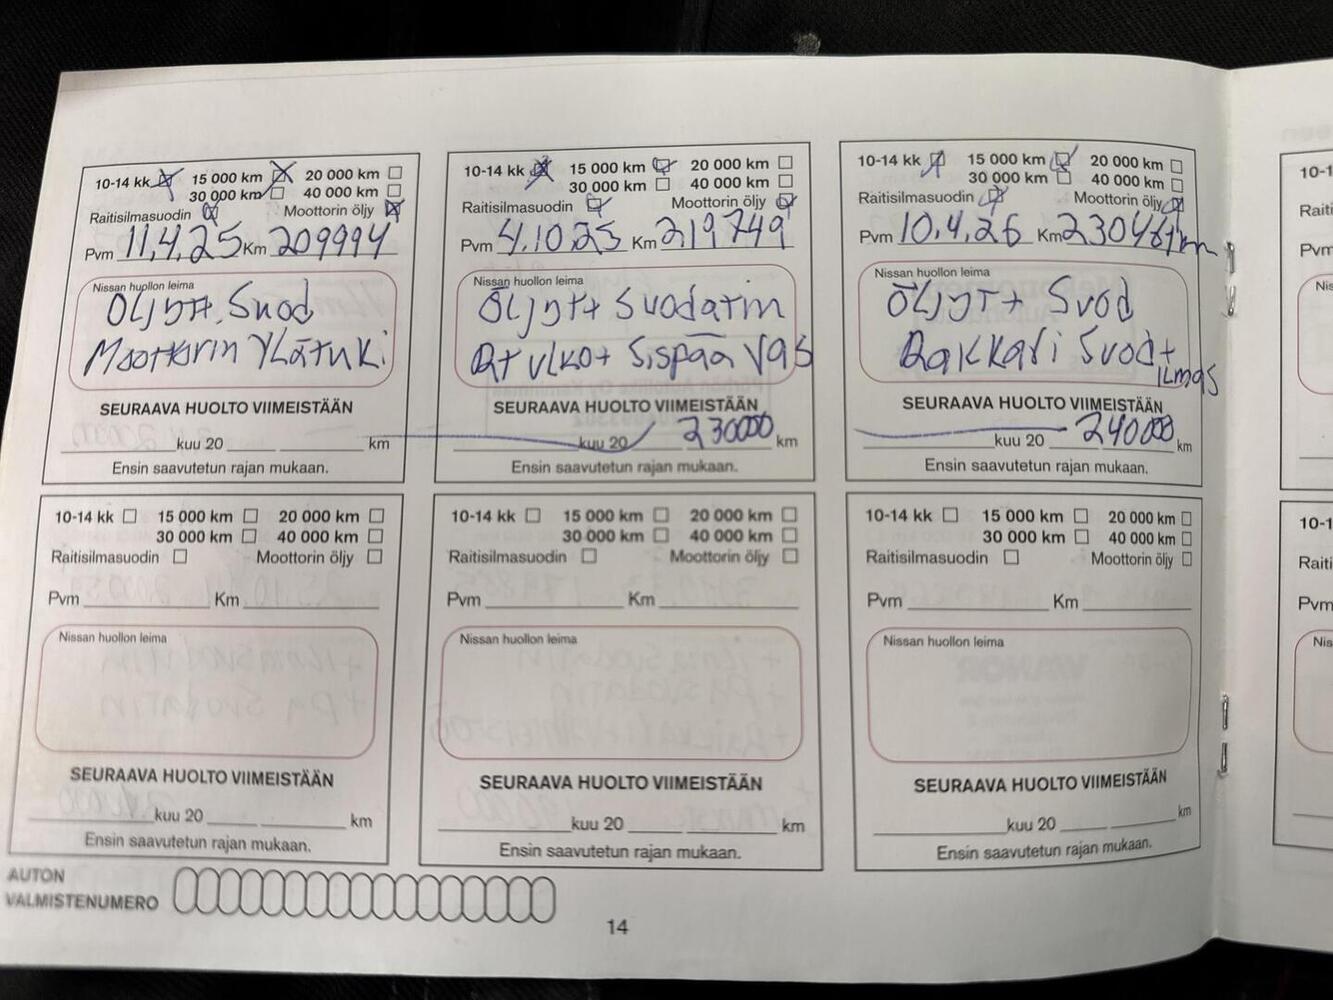 10-14 kk 15 000 km 20 000 km
30 000 km 40 000 km
Raitisilmasuodin Moottorin öljy
Pvm 11.4.25 Km 209994
Nissan huollon leima
Öljyt+ Suod
Moottorin Ylätuki
SEURAAVA HUOLTO VIIMEISTÄÄN
kuu 20 km
Ensin saavutetun rajan mukaan.
10-14 kk 15 000 km 20 000 km
30 000 km 40 000 km
Raitisilmasuodin Moottorin öljy
Pvm 4.10.25 Km 219749
Nissan huollon leima
Öljyt+ Suodatin
Ulko+ Sispää Vas
SEURAAVA HUOLTO VIIMEISTÄÄN
kuu 20 230000 km
Ensin saavutetun rajan mukaan.
10-14 kk 15 000 km 20 000 km
30 000 km 40 000 km
Raitisilmasuodin Moottorin öljy
Pvm 10.4.26 Km
Nissan huollon leima
Öljyt+ Suod
Suod+
ilmas
SEURAAVA HUOLTO VIIMEISTÄÄN
kuu 20 240000 km
Ensin saavutetun rajan mukaan.
10-14 kk 15 000 km 20 000 km
30 000 km 40 000 km
Raitisilmasuodin Moottorin öljy
Pvm Km
Nissan huollon leima
SEURAAVA HUOLTO VIIMEISTÄÄN
kuu 20 km
Ensin saavutetun rajan mukaan.
10-14 kk 15 000 km 20 000 km
30 000 km 40 000 km
Raitisilmasuodin Moottorin öljy
Pvm Km
Nissan huollon leima
SEURAAVA HUOLTO VIIMEISTÄÄN
kuu 20 km
Ensin saavutetun rajan mukaan.
10-14 kk 15 000 km 20 000 km
30 000 km 40 000 km
Raitisilmasuodin Moottorin öljy
Pvm Km
Nissan huollon leima
SEURAAVA HUOLTO VIIMEISTÄÄN
kuu 20 km
Ensin saavutetun rajan mukaan.
AUTON
VALMISTENUMERO
14
10-1
Raiti
Pvm
Nis
10-1
Raiti
Pvm
Nis